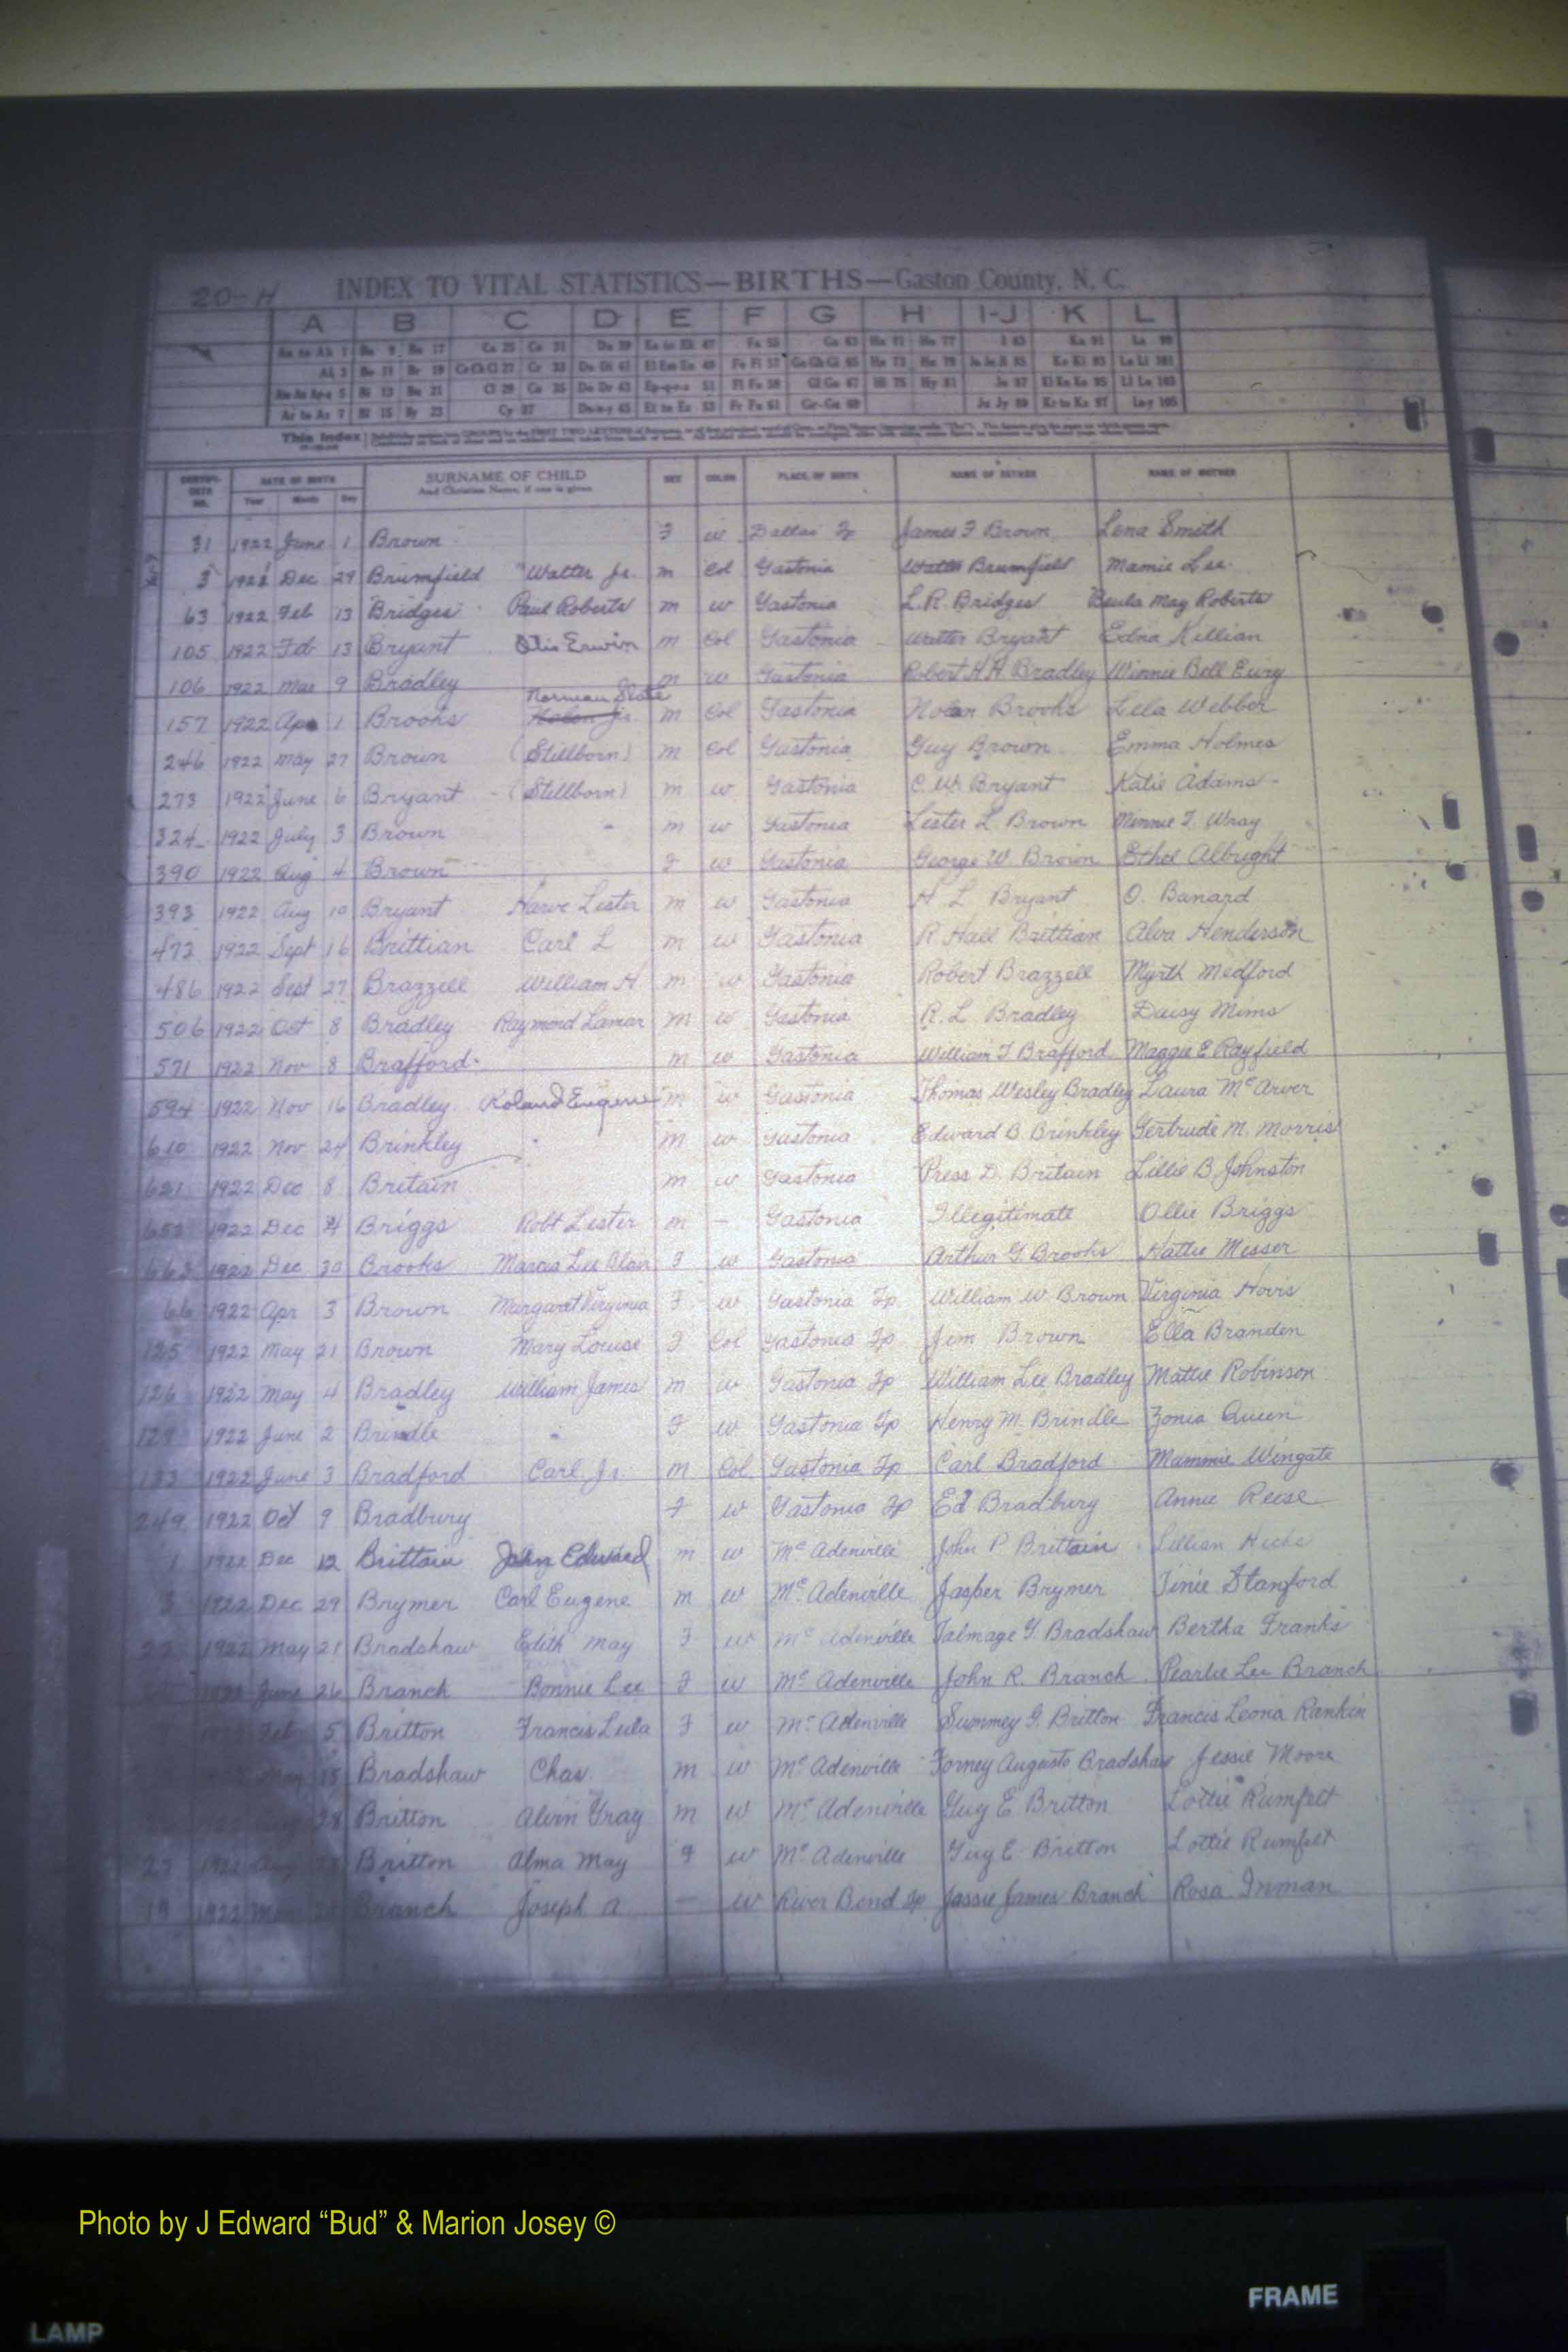 20-H INDEX TO VITAL STATISTICS—BIRTHS—Gaston County, N. C.
A B C D E F G H I-J K L
This Index
SURNAME OF CHILD
And Christian Name, if one is given
DATE OF BIRTH SEX COLOR PLACE OF BIRTH NAME OF FATHER NAME OF MOTHER
Year Month Day
31 1922 June 1 Brown F w Dallas Tp James F Brown Lena Smith
3 1922 Dec 29 Brumfield Walter Jr. m Col Gastonia Walter Brumfield Mamie Lee
63 1922 Feb 13 Bridges Paul Roberts m w Gastonia L.R. Bridges Beula May Roberts
105 1922 Feb 13 Bryant Otis Erwin m Col Gastonia Walter Bryant Edna Killian
106 1922 Mar 9 Bradley m w Gastonia Robert H.H. Bradley Winnie Bell Eury
Norman Slate
157 1922 Apr 1 Brooks m Col Gastonia Nolan Brooks Lela Webber
246 1922 May 27 Brown (Stillborn) m Col Gastonia Guy Brown Emma Holmes
273 1922 June 6 Bryant (Stillborn) m w Gastonia C.W. Bryant Katie Adams
324 1922 July 3 Brown m w Gastonia Lester L. Brown Minnie T. Wray
390 1922 Aug 4 Brown F w Gastonia George W Brown Ethel Albright
393 1922 Aug 10 Bryant Harve Lester m w Gastonia H L Bryant O. Banard
473 1922 Sept 16 Brittian Carl L m w Gastonia R. Hall Brittian Alva Henderson
486 1922 Sept 27 Brazzell William H m w Gastonia Robert Brazzell Myrth Medford
506 1922 Oct 8 Bradley Raymond Lamar m w Gastonia R. L Bradley Daisy Mims
571 1922 Nov 8 Brafford m w Gastonia William T Brafford Maggie E Rayfield
594 1922 Nov 16 Bradley Roland Eugene m w Gastonia Thomas Wesley Bradley Laura McArver
610 1922 Nov 24 Brinkley m w Gastonia Edward B. Brinkley Gertrude M. Morris
621 1922 Dec 8 Britain m w Gastonia Press D. Britain Lillie B Johnston
1922 Dec Briggs Robt Lester m – Gastonia Illegitimate Ollie Briggs
663 1922 Dec 30 Brooks F w Gastonia Arthur G Brooks Hattie Messer
66 1922 Apr 3 Brown Margaret Virginia F w Gastonia Tp William W Brown Virginia Hovis
125 1922 May 21 Brown Mary Louise F Col Gastonia Tp Jim Brown Ella Branden
126 1922 May 4 Bradley William James m w Gastonia Tp William Lee Bradley Mattie Robinson
1922 June 2 Brindle F w Gastonia Tp Henry M. Brindle Zonia Queen
133 1922 June 3 Bradford Carl Jr. m Col Gastonia Tp Carl Bradford Mammie Wingate
249 1922 Oct 9 Bradbury F w Gastonia Tp Ed Bradbury Annie Reese
1 1922 Dec 12 Brittain John Edward m w McAdenville John P Brittain Lillian
3 1922 Dec 29 Brymer Carl Eugene m w McAdenville Jasper Brymer Tinie Stanford
1922 May 21 Bradshaw Edith May F w McAdenville Talmage G. Bradshaw Bertha Franks
June 26 Branch Bonnie Lee F w McAdenville John R. Branch Pearlie Lee Branch
Feb 5 Britton Francis Leila F w McAdenville Summey G. Britton Francis Leona Rankin
15 Bradshaw Chas. m w McAdenville Forney Augusto Bradshaw Jessie Moore
28 Britton Alvin Gray m w McAdenville Guy E. Britton Lottie Rumfelt
1922 Britton Alma May F w McAdenville Guy E. Britton Lottie Rumfelt
19 1922 Branch Joseph A – w River Bend Tp Jassie James Branch Rosa Inman
Photo by J Edward “Bud” & Marion Josey ©
FRAME
LAMP